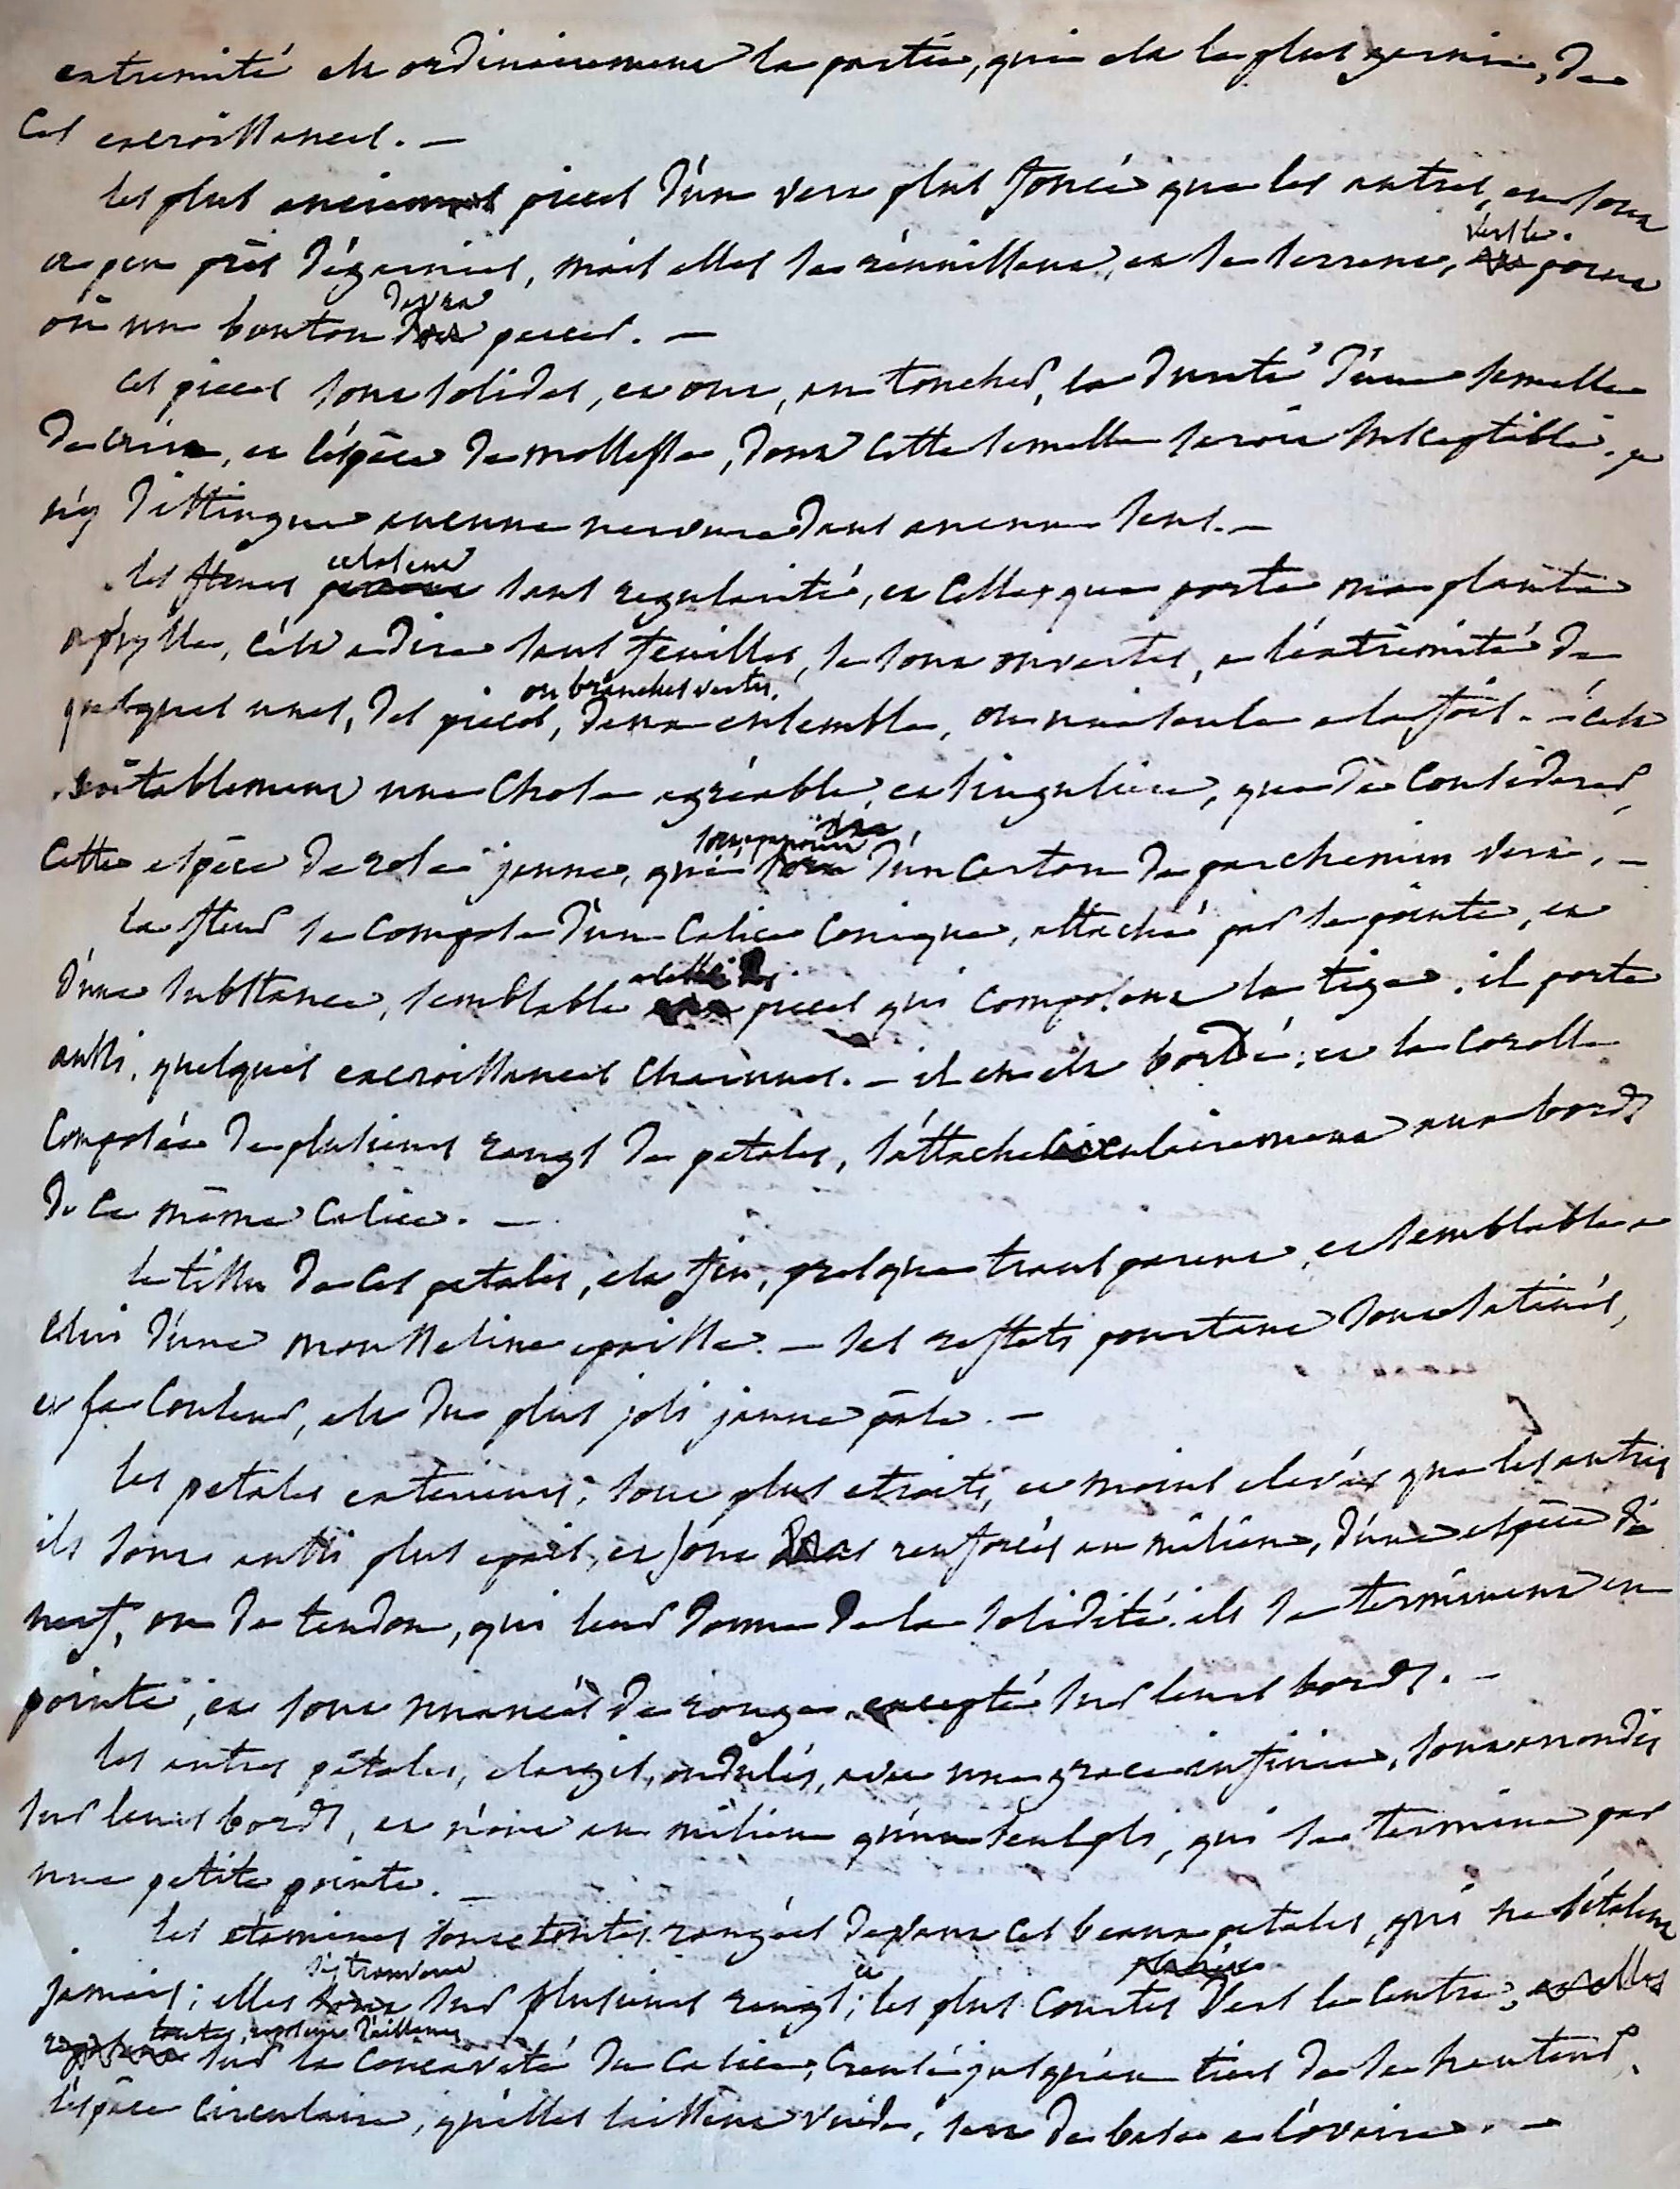 extremité est ordinairement la partie, qui est la plus garnie, de
ces excroissances. —
les plus anciennes pieces d'un verd plus foncé que les autres, en sont
a peu près dégarnies, mais elles se réunissent, et se serrent, vers le point
où un bouton devra percer. —
ces pieces sont solides, et ont, au toucher, la dureté d'une semelle
de cuir, et l'espèce de mollesse, dont cette semelle seroit susceptible. je
n'y distingue aucune nervure dans aucun sens. —
les fleurs eclosent sans regularité, et celles que porte ma plante
aphylle, c'est a dire sans feuilles, se sont ouvertes, a l'extrémité de
quelques unes, des pieces, ou branches vertes, deux ensemble, ou une seule a la fois. — c'est
véritablement une chose agréable, et singulière, que de considerer,
cette espèce de rose jaune, qui sort d'un carton de parchemin verd. —
la fleur se compose d'un calice conique, attaché par sa pointe, et
d'une substance, semblable a celle des pieces qui composent la tige. il porte
aussi, quelques excroissances charnues. — il en est bordé; et la corolle
composée de plusieurs rangs de petales, s'attache circulairement aux bords
de ce même calice. —
le tissu de ces petales, est fin, presque transparent, et semblable a
celui d'une mousseline epaisse. — ses reflets pourtant sont satinés,
et sa couleur, est du plus joli jaune pâle. —
les petales exterieurs, sont plus etroits, et moins elevés que les autres
ils sont aussi plus epais, et sont renforcés au milieu, d'une espèce de
nerf, ou de tendon, qui leur donne de la solidité. ils se terminent en
pointe, et sont nuancés de rouge, excepté sur leurs bords. —
les autres pétales, elargis, ondulés, avec une grace infinie, sont arrondis
sur leurs bords, et n'ont au milieu qu'un seul pli, qui se termine par
une petite pointe. —
les etamines sont toutes rangées devant ces beaux petales, qui ne s'étalent
jamais; elles s'y trouvent sur plusieurs rangs; et les plus courtes vers le centre,
toutes, reposent d'ailleurs sur la concavité du calice, creusé jusqu'au tiers de sa hauteur.
l'espace circulaire, qu'elles laissent vuide, sert de base a l'ovaire. —